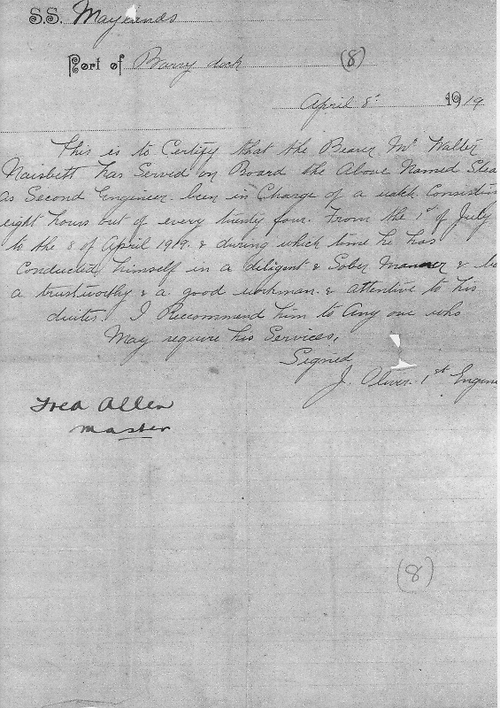 S.S. Maylands
Port of Barry dock (8)
April 8th 1919
This is to Certify that the Bearer Mr Walter
Naisbett has Served on Board the Above Named Stea
as Second Engineer been in Charge of a watch Consistin
eight hours out of every twenty four. From the 1st of July
to the 8 of April 1919. & during which time he has
Conducted himself in a diligent & Sober Manner & is
a trustworthy & a good workman. & attentive to his
duties. I Recommend him to Any one who
May require his Services,
Signed
J. Oliver. 1st Engine
Fred Allen
Master
(8)